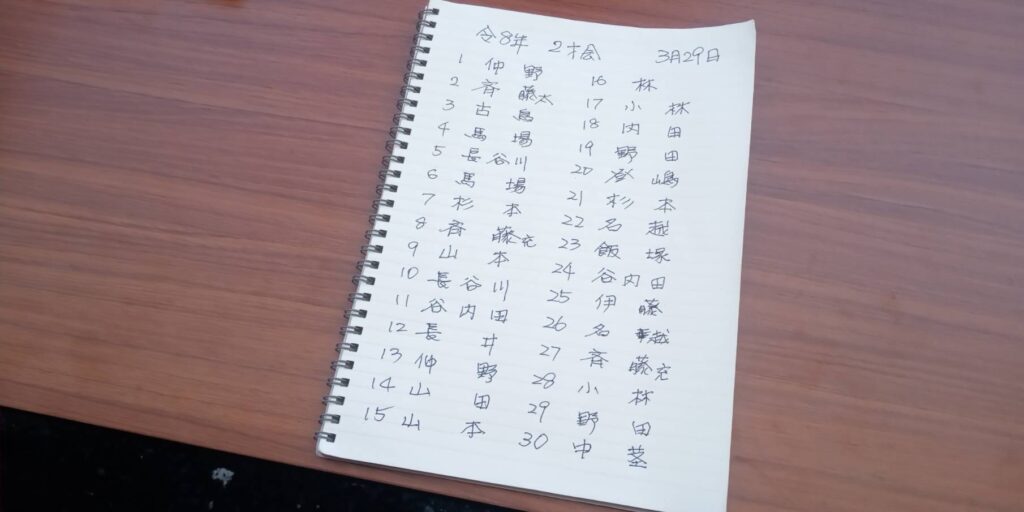 令8年 2才会 3月29日
1 仲野
2 斉藤太
3 古島
4 馬場
5 長谷川
6 馬場
7 杉本
8 斉藤充
9 山本
10 長谷川
11 谷内田
12 長井
13 仲野
14 山田
15 山本
16 林
17 小林
18 内田
19 野田
20 登嶋
21 杉本
22 名越
23 飯塚
24 谷内田
25 伊藤
26 名越
27 斉藤充
28 小林
29 野田
30 中茎